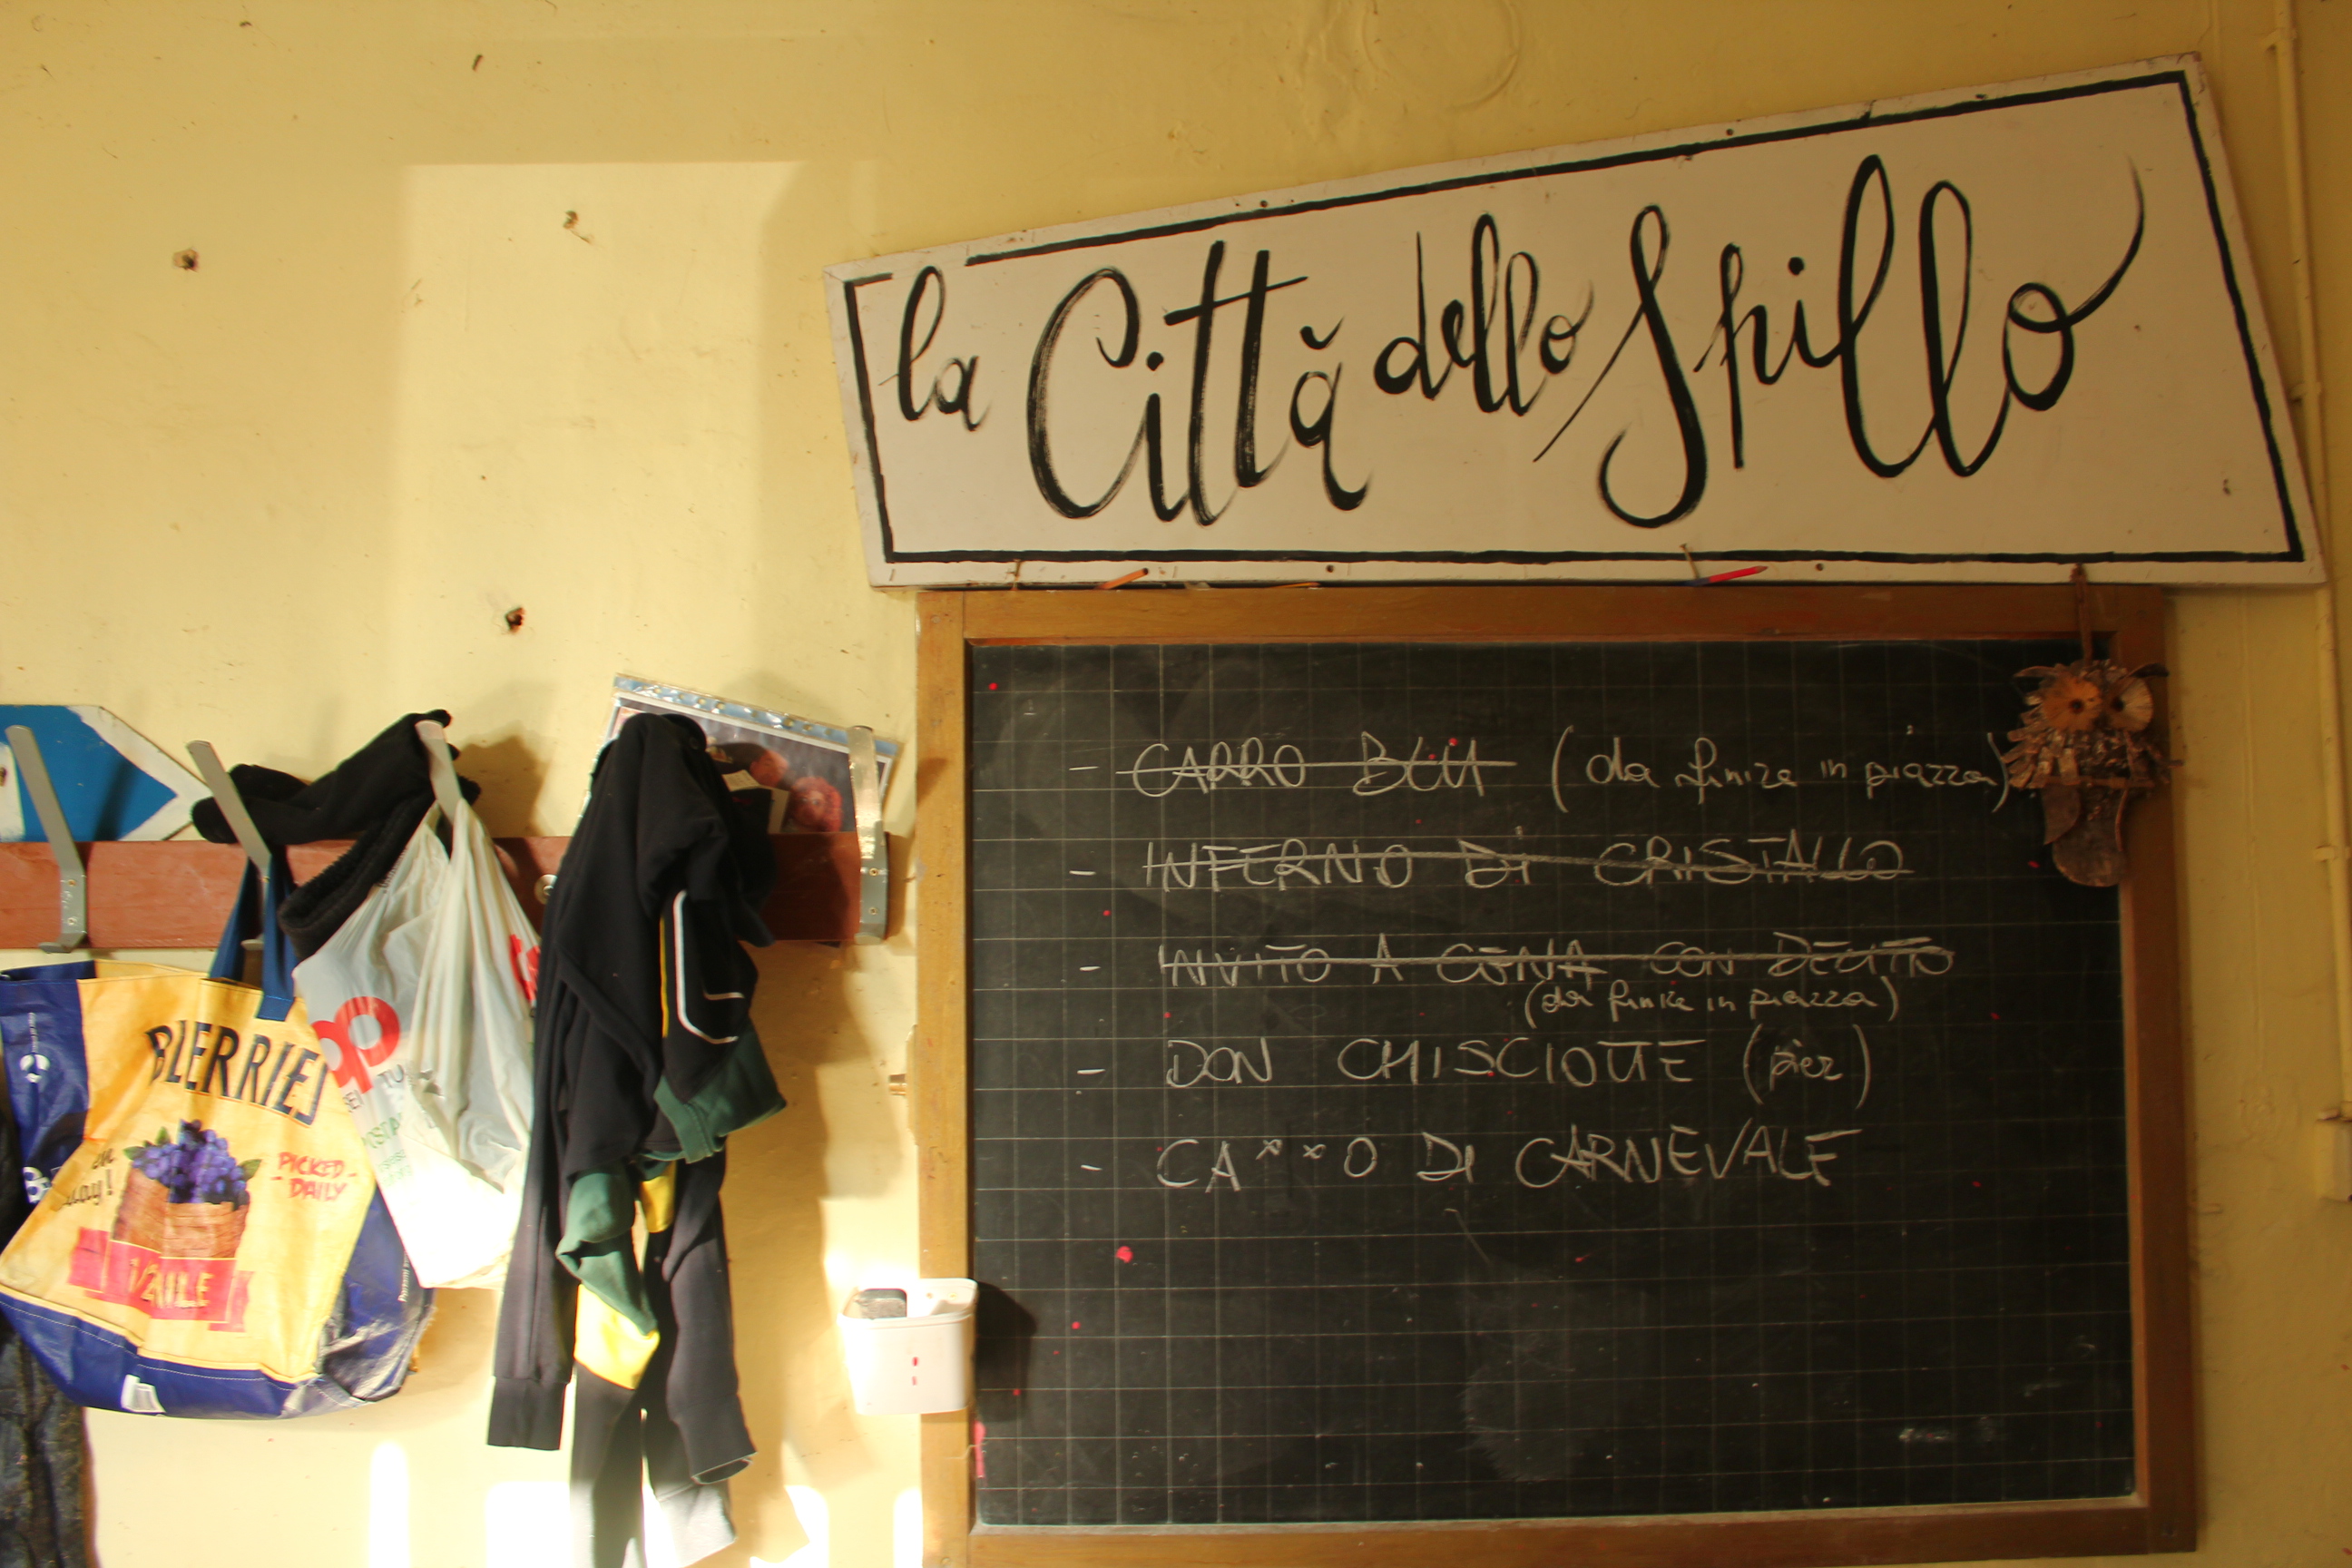 la Città dello Spillo
- CARRO BCU (da finire in piazza)
- INFERNO DI CRISTALLO
- INVITO A CENA CON DELITTO
(da finire in piazza)
- DON CHISCIOTTE (pier)
- CA**O DI CARNEVALE
BLERRIES
PICKED
DAILY